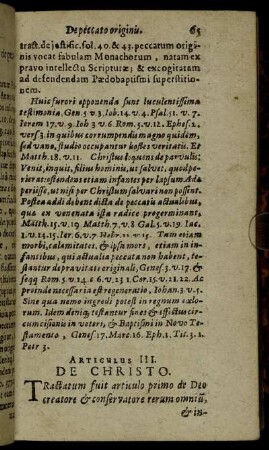 De peccato originis. 65
tract. de justific. fol. 40. & 43. peccatum origi-
nis vocat fabulam Monachorum, natam ex
pravo intellectu Scripturæ; & excogitatam
ad defendendam Pædobaptismi superstitio-
nem.
Huic furori opponenda sunt luculentissima
testimonia, Gen. 5 v 3. Iob. 14. v. 4. Psal. 51. v. 7.
Ierem 17. v. 9. Ioh 3 v 6. Rom. 5. v. 12. Ephes. 2.
vers 3. in quibus corrumpendis magno quidem,
sed vano, studio occupantur hostes veritatis. Et
Matth. 18. v. 11. Christus loquens de parvulis:
Venit, inquit, filius hominis, ut salvet, quod pe-
rierat: ostendens etiam infantes per lapsum Adæ
periisse, ut nisi per Christum salvari non possint.
Postea addi debent dicta de peccatis actualibus,
quæ ex venenata ista radice progerminant,
Matth. 15. v. 19 Matth. 7. v. 18 Gal. 5. v. 19. Iac.
1. v. 14. 15. Ier. 6. v. 7. Hebr. 12. v. 15. Tum etiam
morbi, calamitates, & ipsa mors, etiam in in-
fantibus, qui actualia peccata non habent, te-
stantur de pravitate originali, Genes. 3. v. 17. &
seqq Rom. 5. v. 14 6. v. 23 1 Cor. 15. v. 21. 22. Ac
proinde necessaria est regeneratio, Iohan. 3. v. 5.
Sine qua nemo ingredi potest in regnum cælo-
rum. Idem deniq; testantur fines & effectus cir-
cumcisionis in veteri, & Baptismi in Novo Te-
stamento, Genes. 17. Marc. 16. Eph. 1. Tit. 3. 1.
Petr 3.
ARTICULUS III.
DE CHRISTO.
TRactatum fuit articulo primo de Deo
creatore & conservatore rerum omniũ,
& in-